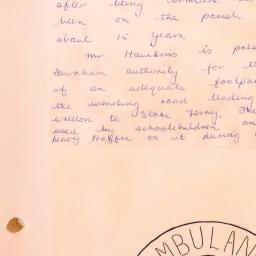 after being
been on the parish
about 15 years.
Mr. Hawkins is pres
Downham authority for t
of an adequate footpa
the winding road leading
Wretton to Stoke Ferry. The
used by schoolchildren an
heavy traffic on it during
MBULAN